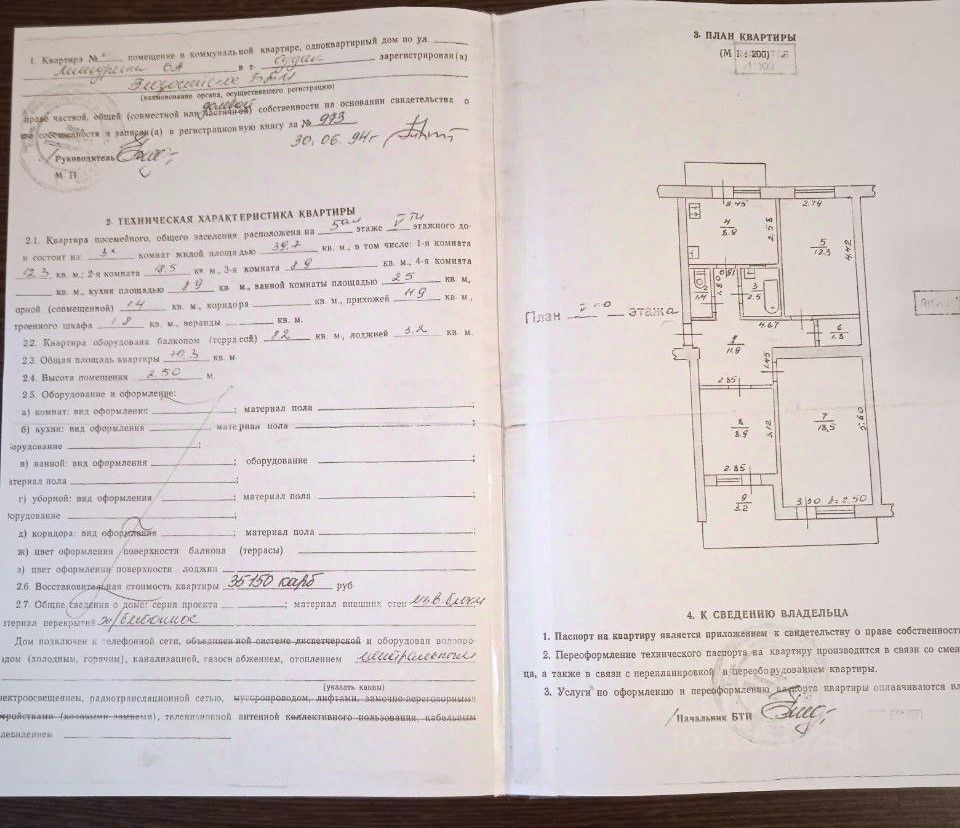 1. Квартира № помещение в коммунальной квартире, одноквартирный дом по ул.
в г. зарегистрирован(а)
БТИ
(наименование органа, осуществившего регистрацию)
долевой
праве частной, общей (совместной или частичной) собственности на основании свидетельства о
собственности и записан(а) в регистрационную книгу за № 973
30.06.94г
Руководитель
М П
2. ТЕХНИЧЕСКАЯ ХАРАКТЕРИСТИКА КВАРТИРЫ
2.1. Квартира посемейного, общего заселения расположена на 5ом этаже V ти этажного до-
и состоит из: 3х комнат жилой площадью 39.7 кв. м., в том числе: 1-я комната
12.3 кв. м.: 2-я комната 18.5 кв м., 3-я комната 8.9 кв. м., 4-я комната
кв. м., кухни площадью 8.9 кв м., ванной комнаты площадью 2.5 кв. м,
орной (совмещенной) 1.4 кв. м., коридора кв. м., прихожей 11.9 кв м,
троенного шкафа 1.8 кв м., веранды кв. м.
2.2. Квартира оборудована балконом (террасой) 8.2 кв. м., лоджией 3.2 кв м.
2.3. Общая площадь квартиры 70.3 кв. м.
2.4. Высота помещения 2.50 м.
2.5. Оборудование и оформление:
а) комнат: вид оформления ; материал пола
б) кухни: вид оформления материал пола
борудование ;
в) ванной: вид оформления ; оборудование
атериал пола
г) уборной: вид оформления ; материал пола
борудование ;
д) коридора: вид оформления ; материал пола
ж) цвет оформления поверхности балкона (террасы)
з) цвет оформления поверхности лоджии
2.6. Восстановительная стоимость квартиры 35150 карб руб
2.7. Общие сведения о доме: серия проекта ; материал внешних стен блоки
атериал перекрытий ж/бетонное
Дом подключен к телефонной сети, объединенной системе диспетчерской и оборудован водопро-
одом (холодным, горячим), канализацией, газоснабжением, отоплением центральным
(указать каким)
лектроосвещением, радиотрансляционной сетью, мусоропроводом, лифтами, замочно-переговорными
тройствами (кодовыми замками), телевизионной антенной коллективного пользования, кабельным
левидением
3. ПЛАН КВАРТИРЫ
(М 1:200)
1:100
План этажа
3.45
2.74
4
8.9
2.58
5
12.3
4.42
1.4
1.80
0.91
3
2.5
4.67
6
1.8
2
11.9
1.45
2.85
8
8.9
3.12
7
18,5
5.60
2.85
9
3.2
3.30
2.50
4. К СВЕДЕНИЮ ВЛАДЕЛЬЦА
1. Паспорт на квартиру является приложением к свидетельству о праве собственност
2. Переоформление технического паспорта на квартиру производится в связи со смен
ца, а также в связи с перепланировкой и переоборудованием квартиры.
3. Услуги по оформлению и переоформлению паспорта квартиры оплачиваются вл
Начальник БТИ